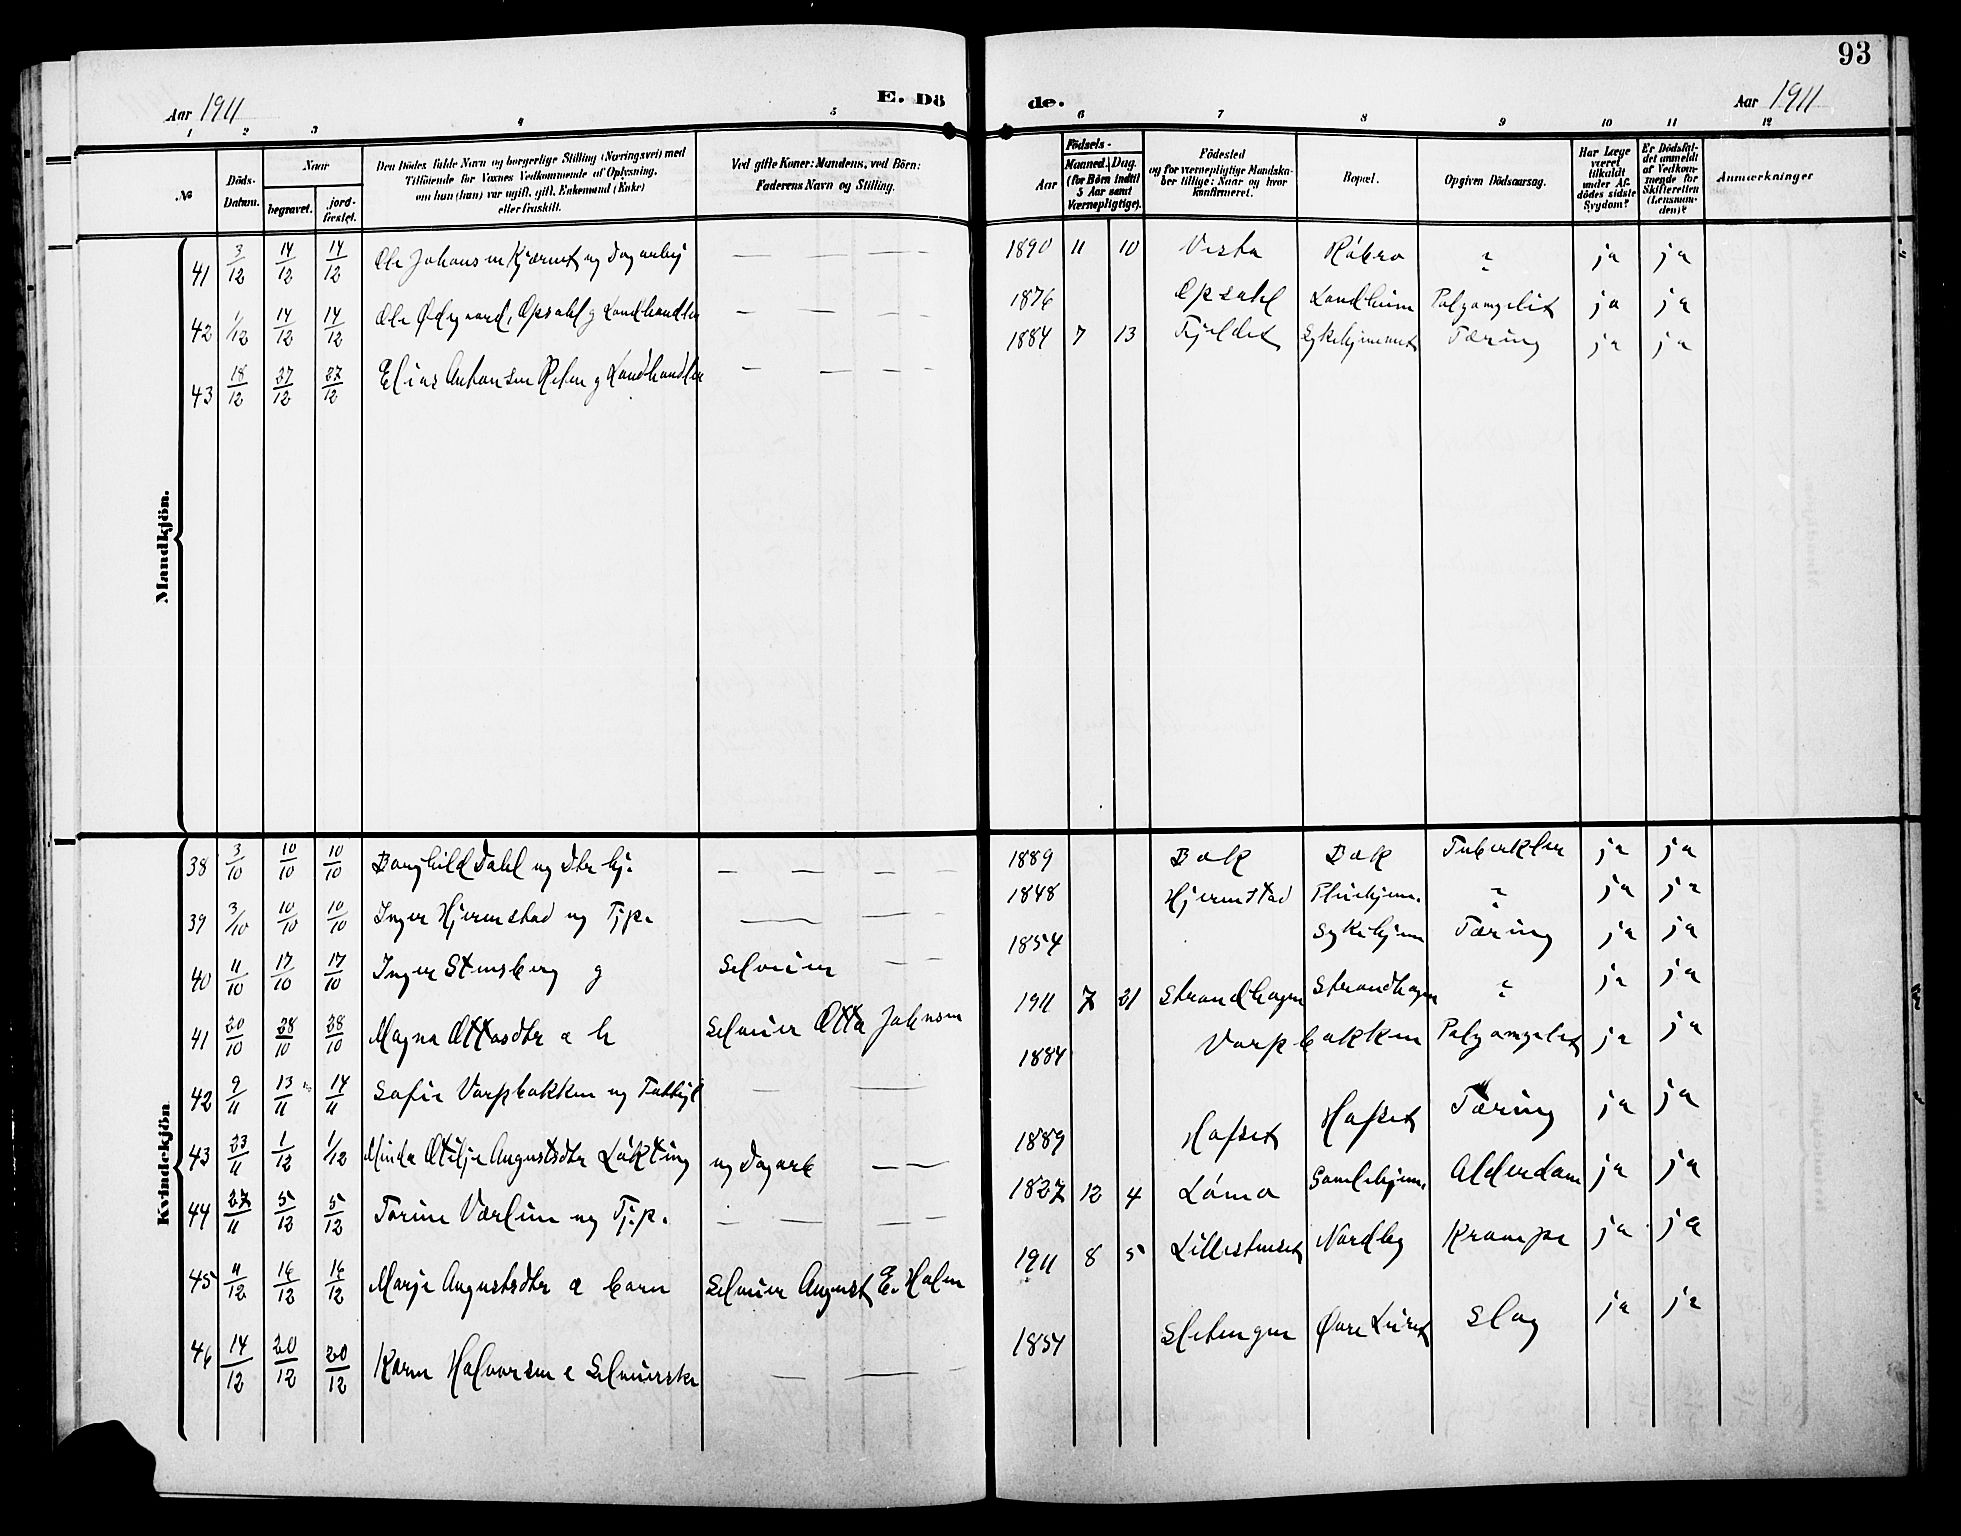 93
Aar 1911
E. Dö
de.
Aar 1911
1 2 3 4 5 6 7 8 9 10 11 12
No
Döds-Datum.
Naar
begravet.
jord-fæstet.
Den Dödes fulde Navn og borgerlige Stilling (Næringsvei) med
Tilföiende for Voxnes Vedkommende af Oplysning,
om han (hun) var ugift, gift, Enkemand (Enke)
eller fraskilt.
Ved gifte Koner: Mandens, ved Börn:
Faderens Navn og Stilling.
Födsels-
Aar
Maaned. Dag.
(for Börn indtil
5 Aar samt
Værnepligtige).
Födested
og for værnepligtige Mandska-
ber tillige: Naar og hvor
konfirmeret.
Bopæl.
Opgiven Dödsaarsag.
Har Læge
været
tilkaldt
under Af-
dödes sidste
Sygdom?
Er Dödsfal-
det anmeldt
af Vedkom-
mende for
Skifteretten
(Lensman-
den)?
Anmærkninger
Mandkjön.
41 3/12 14/12 14/12 Ole Johansen Kjærnet ug Dagarbej — — — — 1890 11 10 Vesta Röbro ? ja ja
42 1/12 14/12 14/12 Ole Ødegaard, Opsahl g Landhandler — — — — 1876 Opsahl Landheim Pulzangelit ja ja
43 18/12 27/12 27/12 Elias Antonsen g Landhandler — — — — 1884 7 13 Fjeldet Sykehjemmet Tæring ja ja
Kvindekjön
38 3/10 10/10 10/10 Borghild Dahl ug Dtr hj. — — — — — 1889 Bak Bak Tuberkler ja ja
39 3/10 10/10 10/10 Inger Hjermstad ug Tjp. — — — 1848 Hjermstad Pleiehjem. ? ja ja
40 11/10 17/10 17/10 Inger Stensberg g Selveier — — 1854 Sykehjem Tæring ja ja
41 20/10 28/10 28/10 Magna Ottosdtr e b Selveier Otto Johnsen 1911 7 21 Strandhagen Strandhagen ? ja ja
42 9/11 13/11 14/11 Sofie Varpbakken ug Fattigl — — 1884 Varpbakken Pulzangelit ja ja
43 23/11 1/12 1/12 Minda Otilje Augustsdtr Lökting ug Dagarb — — 1889 Hafset Hafset Tæring ja ja
44 27/11 5/12 5/12 Torine Værlien ug Tj.p. — — — — 1827 12 4 Lömo Samlehjem. Alderdom ja ja
45 11/12 16/12 16/12 Marje Augustsdtr e barn Selveier August E. Holen 1911 8 5 Lillestuset Nordby Krampe ja ja
46 14/12 20/12 20/12 Karen Halvorsen e Selveierske — — — 1854 Sletengen Øvre Liset Slag ja ja